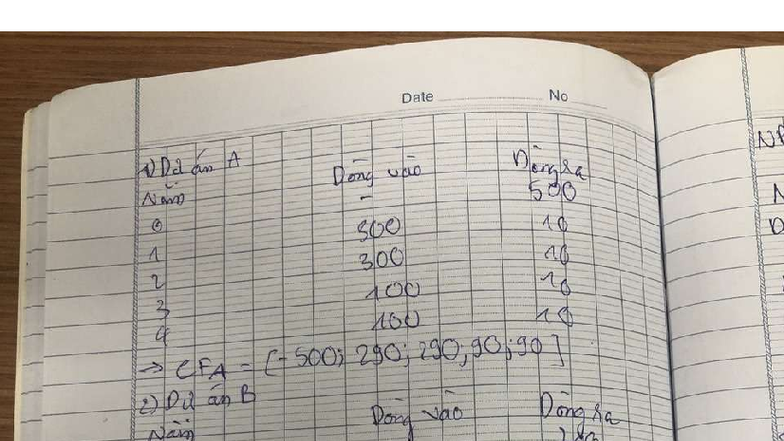 Date No
1) Dự án A
Năm Dòng vào Dòng ra
0 - 500
1 300 10
2 300 10
3 100 10
4 100 10
=> CFA = [-500; 290; 290; 90; 90]
2) Dự án B
Năm Dòng vào Dòng ra